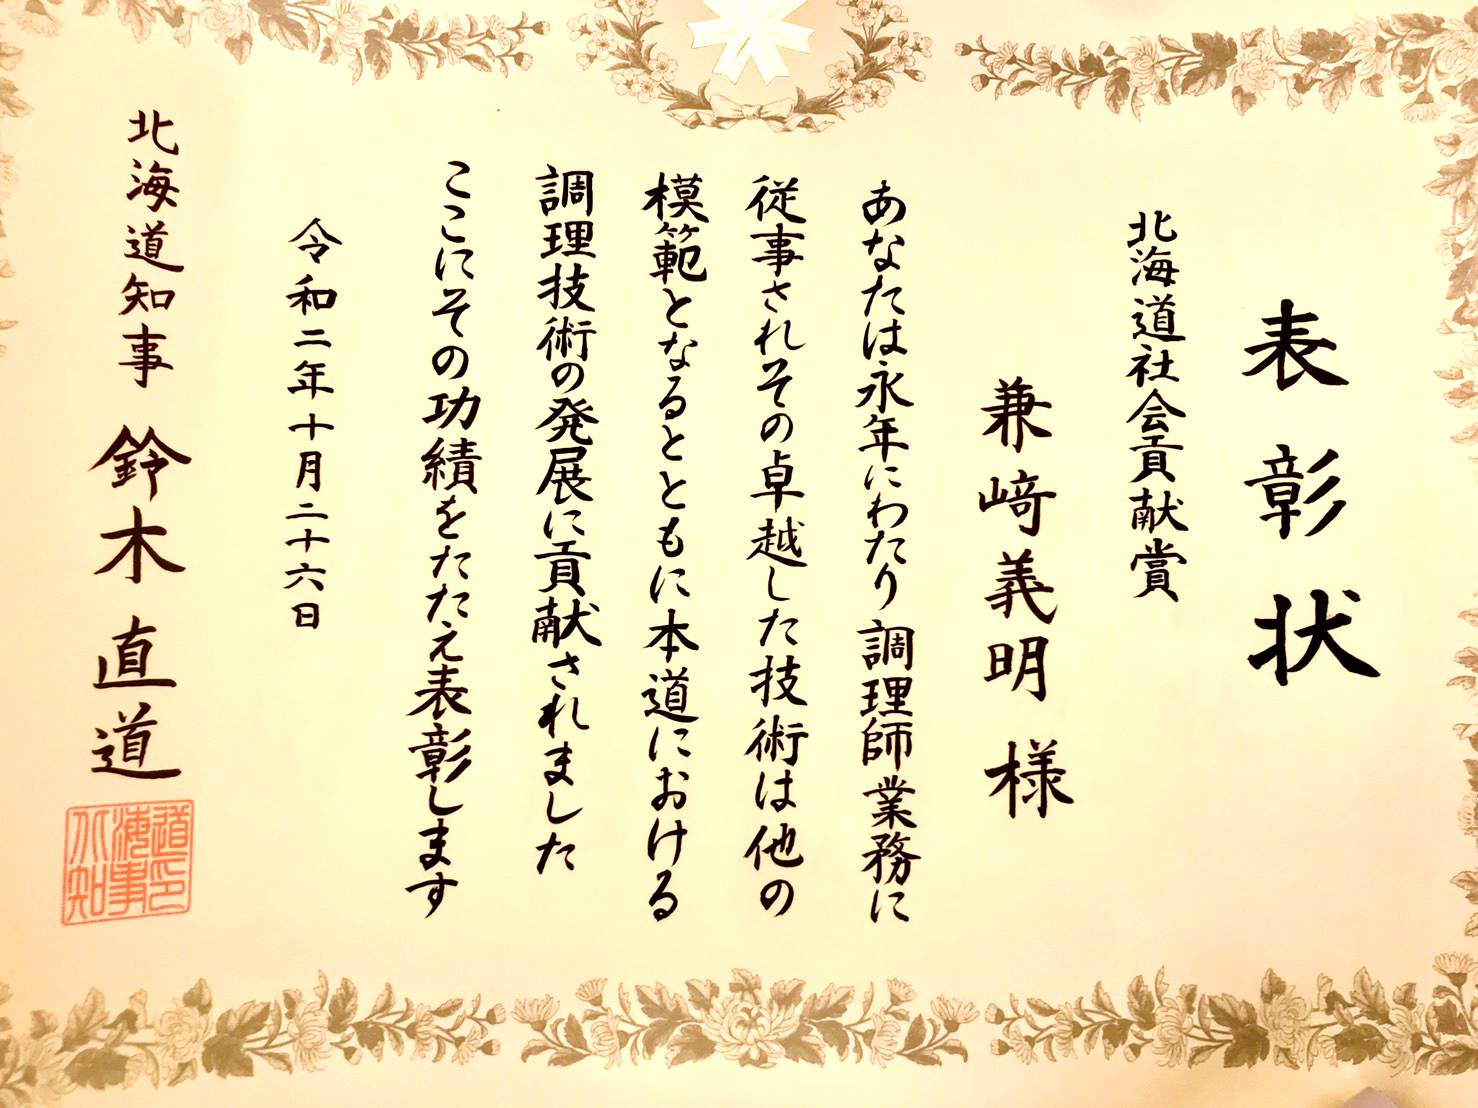 表彰状
北海道社会貢献賞
兼﨑義明 様
あなたは永年にわたり調理師業務に
従事されその卓越した技術は他の
模範となるとともに本道における
調理技術の発展に貢献されました
ここにその功績をたたえ表彰します
令和二年十月二十六日
北海道知事 鈴木直道
道印
海事
北知